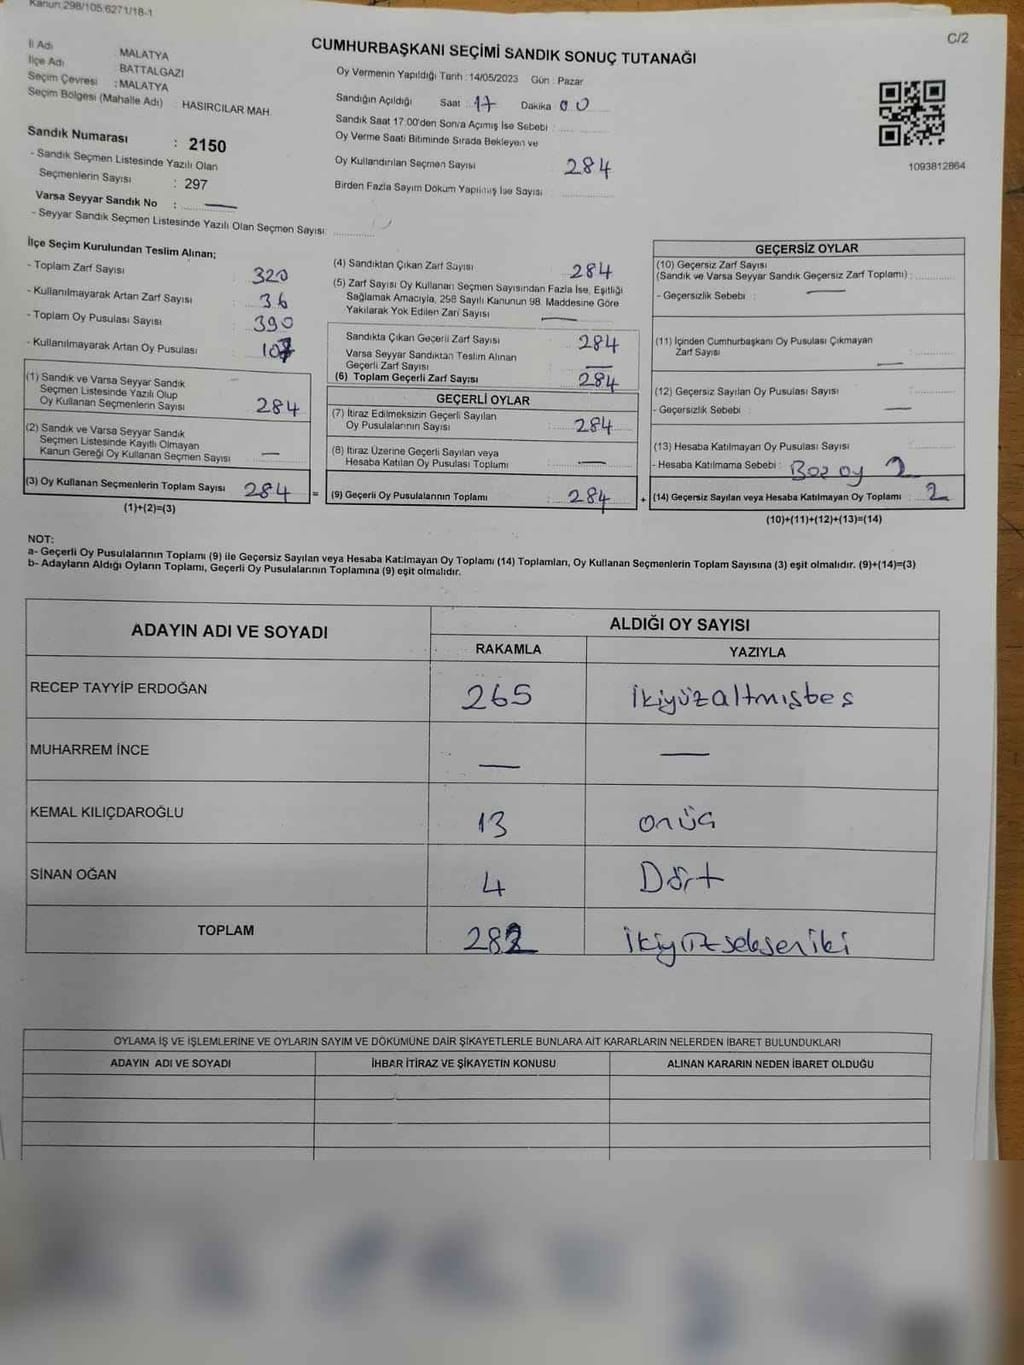 Kanun:298/105:6271/18-1
C/2
CUMHURBAŞKANI SEÇİMİ SANDIK SONUÇ TUTANAĞI
İl Adı MALATYA
İlçe Adı BATTALGAZI
Seçim Çevresi : MALATYA
Seçim Bölgesi (Mahalle Adı) HASIRCILAR MAH.
Sandık Numarası : 2150
- Sandık Seçmen Listesinde Yazılı Olan
Seçmenlerin Sayısı : 297
Varsa Seyyar Sandık No : —
- Seyyar Sandık Seçmen Listesinde Yazılı Olan Seçmen Sayısı
Oy Vermenin Yapıldığı Tarih : 14/05/2023 Gün : Pazar
Sandığın Açıldığı Saat 17 Dakika 00
Sandık Saat 17:00'den Sonra Açımış İse Sebebi
Oy Verme Saati Bitiminde Sırada Bekleyen ve
Oy Kullandırılan Seçmen Sayısı 284
Birden Fazla Sayım Döküm Yapılmış İse Sayısı
1093812864
İlçe Seçim Kurulundan Teslim Alınan;
- Toplam Zarf Sayısı 320
- Kullanılmayarak Artan Zarf Sayısı 36
- Toplam Oy Pusulası Sayısı 390
- Kullanılmayarak Artan Oy Pusulası
(1) Sandık ve Varsa Seyyar Sandık
Seçmen Listesinde Yazılı Olup
Oy Kullanan Seçmenlerin Sayısı 284
(2) Sandık ve Varsa Seyyar Sandık
Seçmen Listesinde Kayıtlı Olmayan
Kanun Gereği Oy Kullanan Seçmen Sayısı —
(3) Oy Kullanan Seçmenlerin Toplam Sayısı 284 =
(1)+(2)=(3)
(4) Sandıktan Çıkan Zarf Sayısı 284
(5) Zarf Sayısı Oy Kullanan Seçmen Sayısından Fazla İse, Eşitliği
Sağlamak Amacıyla, 298 Sayılı Kanunun 98. Maddesine Göre
Yakılarak Yok Edilen Zarf Sayısı —
Sandıkta Çıkan Geçerli Zarf Sayısı 284
Varsa Seyyar Sandıktan Teslim Alınan
Geçerli Zarf Sayısı —
(6) Toplam Geçerli Zarf Sayısı 284
GEÇERLİ OYLAR
(7) İtiraz Edilmeksizin Geçerli Sayılan
Oy Pusulalarının Sayısı 284
(8) İtiraz Üzerine Geçerli Sayılan veya
Hesaba Katılan Oy Pusulası Toplamı —
(9) Geçerli Oy Pusulalarının Toplamı 284 +
GEÇERSİZ OYLAR
(10) Geçersiz Zarf Sayısı
(Sandık ve Varsa Seyyar Sandık Geçersiz Zarf Toplamı) :
- Geçersizlik Sebebi : —
(11) İçinden Cumhurbaşkanı Oy Pusulası Çıkmayan
Zarf Sayısı —
(12) Geçersiz Sayılan Oy Pusulası Sayısı
- Geçersizlik Sebebi : —
(13) Hesaba Katılmayan Oy Pusulası Sayısı
- Hesaba Katılmama Sebebi : Boz oy 2
(14) Geçersiz Sayılan veya Hesaba Katılmayan Oy Toplamı 2
(10)+(11)+(12)+(13)=(14)
NOT:
a- Geçerli Oy Pusulalarının Toplamı (9) ile Geçersiz Sayılan veya Hesaba Katılmayan Oy Toplamı (14) Toplamları, Oy Kullanan Seçmenlerin Toplam Sayısına (3) eşit olmalıdır. (9)+(14)=(3)
b- Adayların Aldığı Oyların Toplamı, Geçerli Oy Pusulalarının Toplamına (9) eşit olmalıdır.
ADAYIN ADI VE SOYADI ALDIĞI OY SAYISI
RAKAMLA YAZIYLA
RECEP TAYYİP ERDOĞAN 265 ikiyüzaltmışbeş
MUHARREM İNCE — —
KEMAL KILIÇDAROĞLU 13 onüç
SİNAN OĞAN 4 Dört
TOPLAM 282 ikiyüzsekseniki
OYLAMA İŞ VE İŞLEMLERİNE VE OYLARIN SAYIM VE DÖKÜMÜNE DAİR ŞİKAYETLERLE BUNLARA AİT KARARLARIN NELERDEN İBARET BULUNDUKLARI
ADAYIN ADI VE SOYADI İHBAR İTİRAZ VE ŞİKAYETİN KONUSU ALINAN KARARIN NEDEN İBARET OLDUĞU